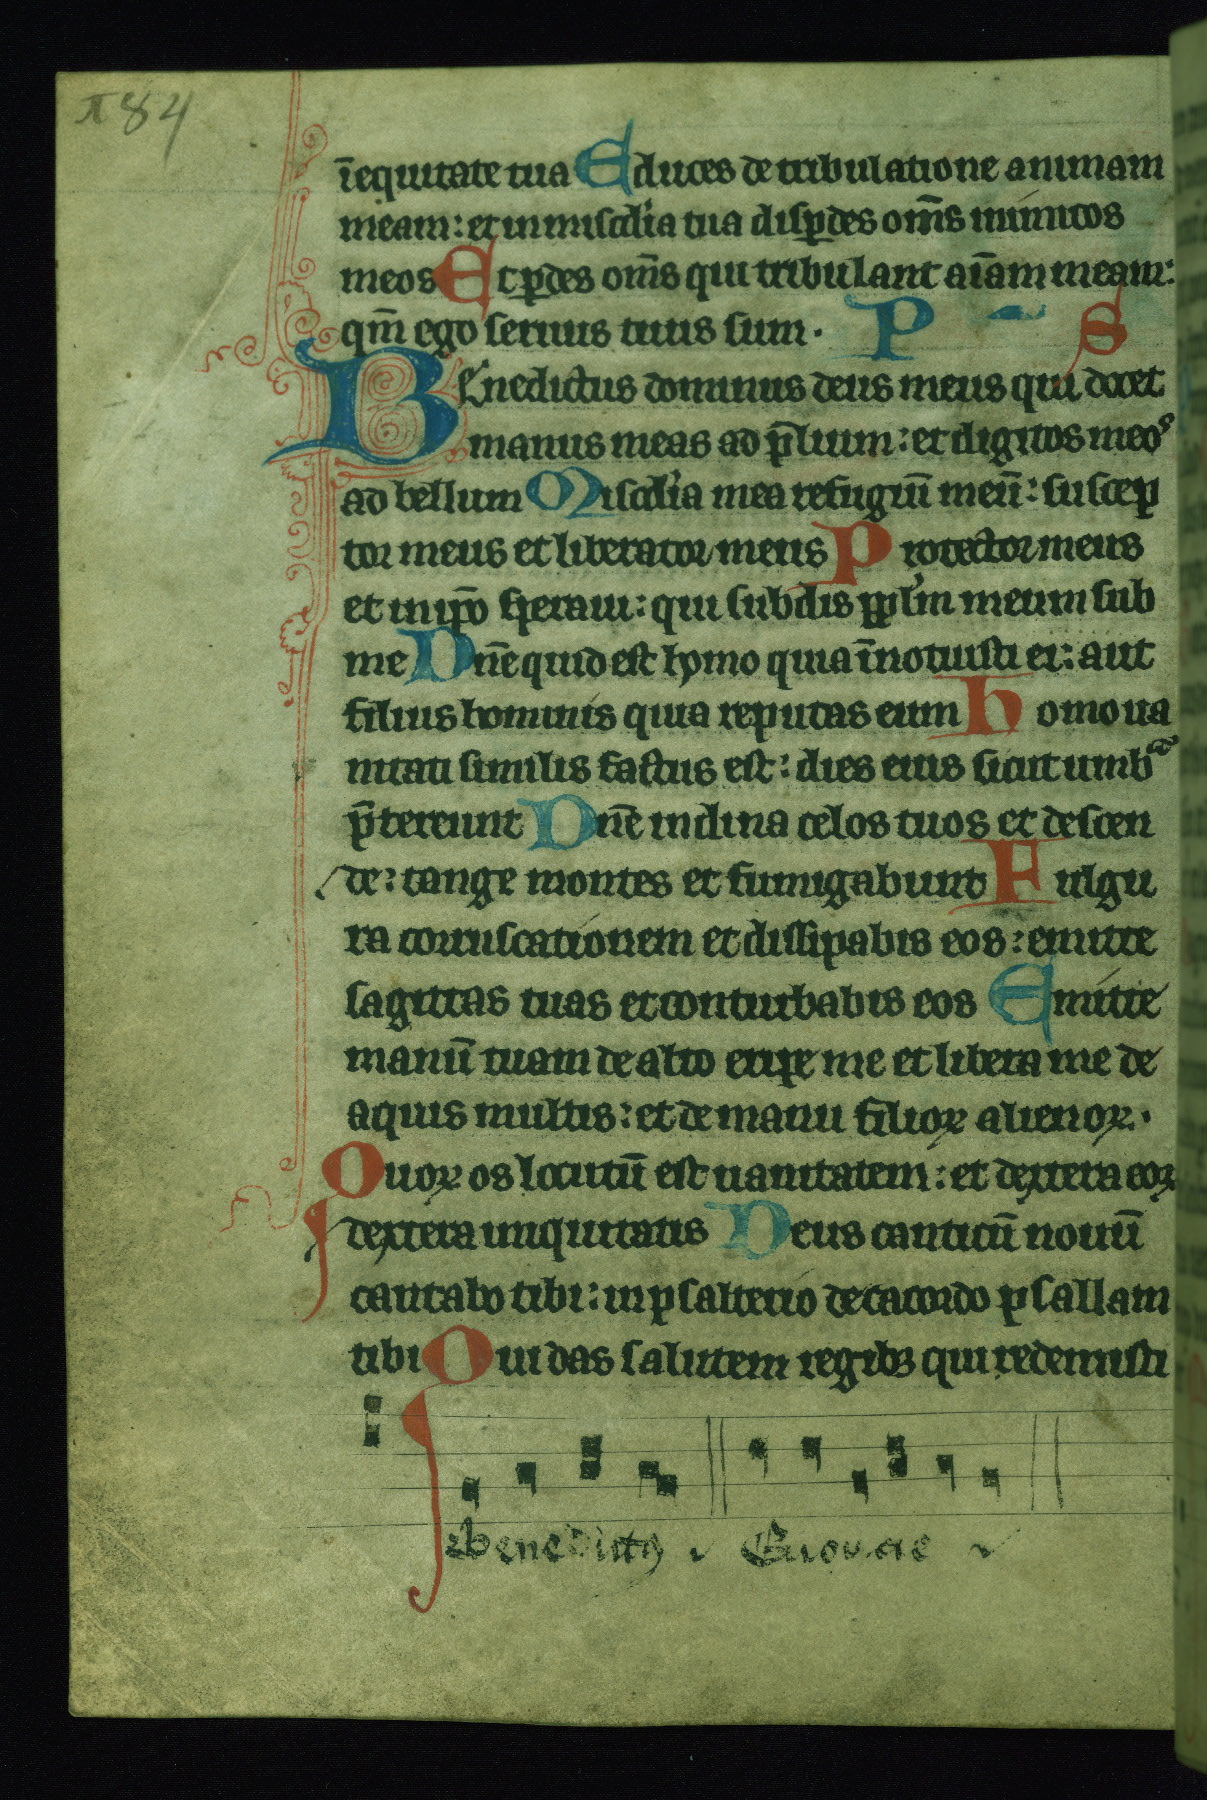 184
īequitate tua Educes de tribulatione animam
meam: et in miscdia tua disꝑdes om̄s inimicos
meos Et ꝑdes om̄s qui tribulant aīam meam:
qm̄ ego seruus tuus sum. P S
Benedictus dominus deus meus qui docet
manus meas ad p̄lium: et digitos meoꝰ
ad bellum Miscdia mea refugiū meū: suscep
tor meus et liberator meus Protector meus
et in ip̄o speraui: qui subdis pplm meum sub
me Dn̄e quid est homo quia īnotuisti ei: aut
filius hominis quia reputas eum Homo ua
nitati similis factus est: dies eius sicut umbᵃ
p̄tereunt Dn̄e inclina celos tuos et descen
de: tange montes et fumigabunt Fulgu
ra coruscationem et dissipabis eos: emitte
sagittas tuas et conturbabis eos Emitte
manū tuam de alto eripe me et libera me de
aquis multis: et de manu filioꝝ alienoꝝ.
Quoꝝ os locutū est uanitatem: et dextera eoꝝ
dextera iniquitatis Deus canticū nouū
cantabo tibi: in psalterio decacordo psallam
tibi Qui das salutem regibꝫ qui redemisti
Benedictꝰ Euouae